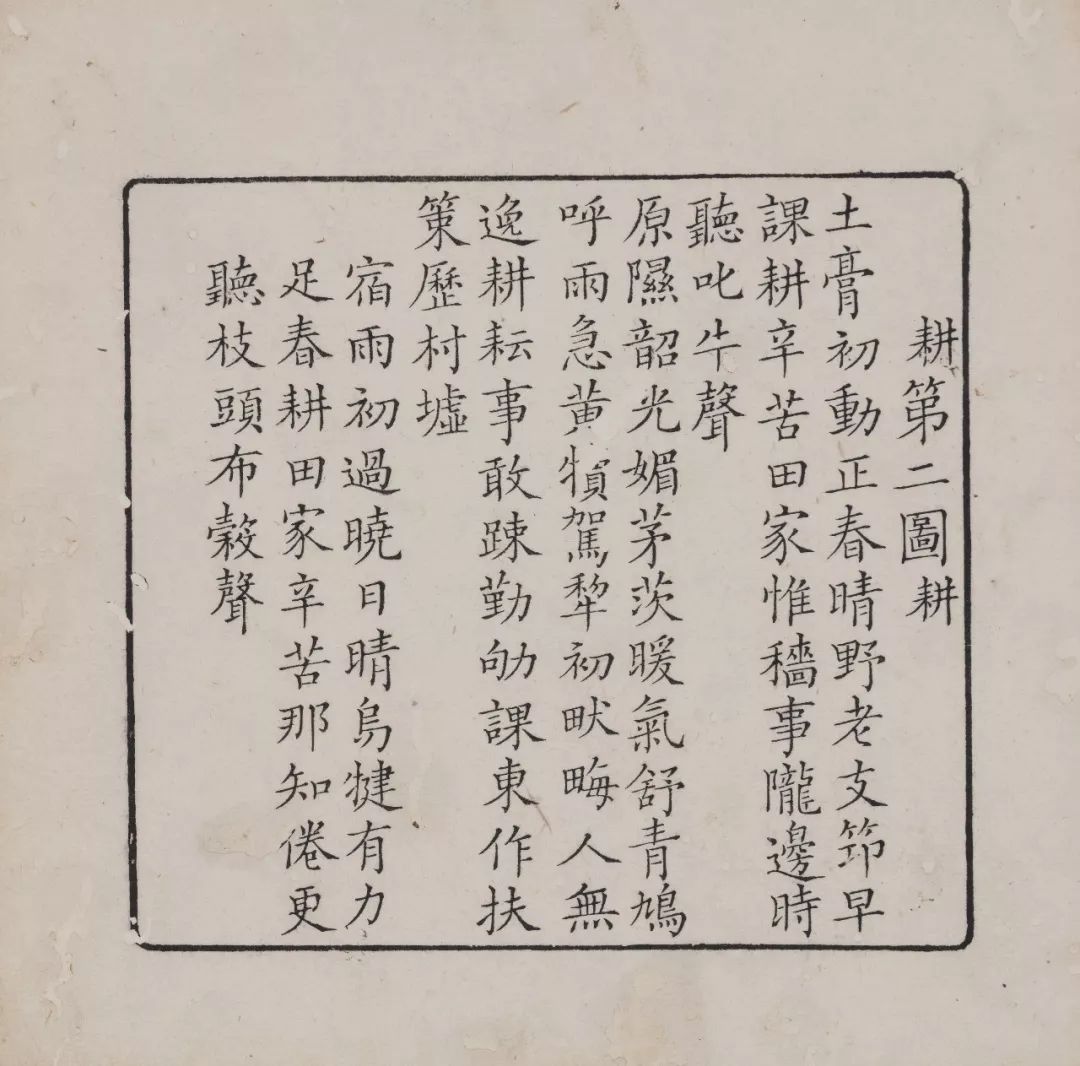 耕第二圖耕
土膏初動正春晴野老支筇早
課耕辛苦田家惟穡事隴邊時
聽叱牛聲
原隰韶光媚茅茨暖氣舒青鳩
呼雨急黃犢駕犂初畎畮人無
逸耕耘事敢踈勤劬課東作扶
策歷村墟
宿雨初過曉日晴烏犍有力
足春耕田家辛苦那知倦更
聽枝頭布穀聲